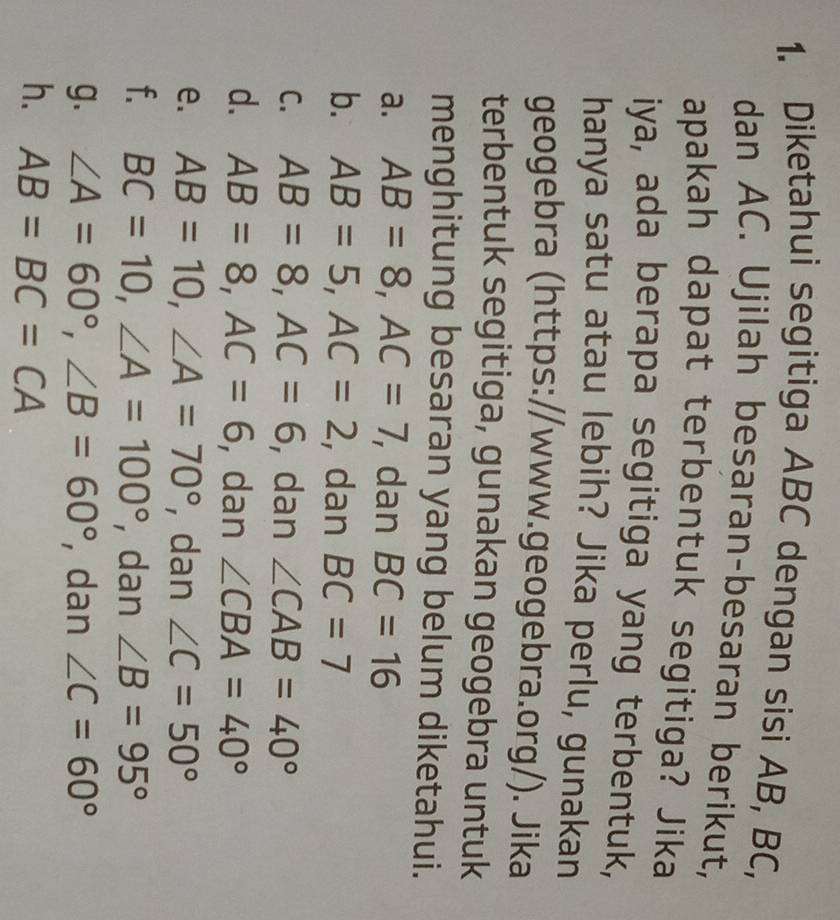 1. Diketahui segitiga ABC dengan sisi AB, BC,
dan AC. Ujilah besaran-besaran berikut,
apakah dapat terbentuk segitiga? Jika
iya, ada berapa segitiga yang terbentuk,
hanya satu atau lebih? Jika perlu, gunakan
geogebra (https://www.geogebra.org/). Jika
terbentuk segitiga, gunakan geogebra untuk
menghitung besaran yang belum diketahui.
a. AB = 8, AC = 7, dan BC = 16
b. AB = 5, AC = 2, dan BC = 7
c. AB = 8, AC = 6, dan ∠CAB = 40°
d. AB = 8, AC = 6, dan ∠CBA = 40°
e. AB = 10, ∠A = 70°, dan ∠C = 50°
f. BC = 10, ∠A = 100°, dan ∠B = 95°
g. ∠A = 60°, ∠B = 60°, dan ∠C = 60°
h. AB = BC = CA